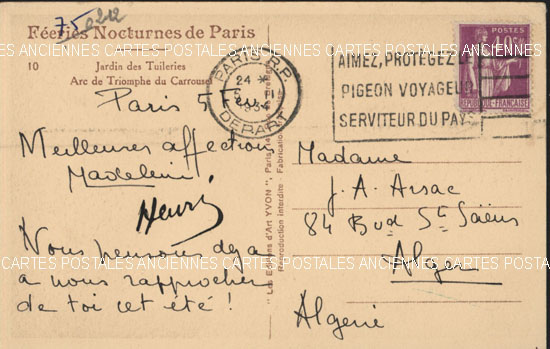 75 0212
Féeries Nocturnes de Paris
10 Jardin des Tuileries
Arc de Triomphe du Carrousel
Paris 5 F
Meilleures affections
Madeleine
Henri
Nous pensons déjà
à nous rapprocher
de toi cet été !
"Les Editions d'Art YVON", Paris
Reproduction interdite - Fabrication
PARIS R.P.
24 *
DEPART
AIMEZ, PROTÉGEZ LE
PIGEON VOYAGEUR
SERVITEUR DU PAYS
POSTES
REPUBLIQUE FRANÇAISE
Madame
J. A. Arsac
84 Bvd St Saëns
Alger
Algerie
CARTES POSTALES ANCIENNES CARTES POSTALES ANCIENNES CARTES POSTALES